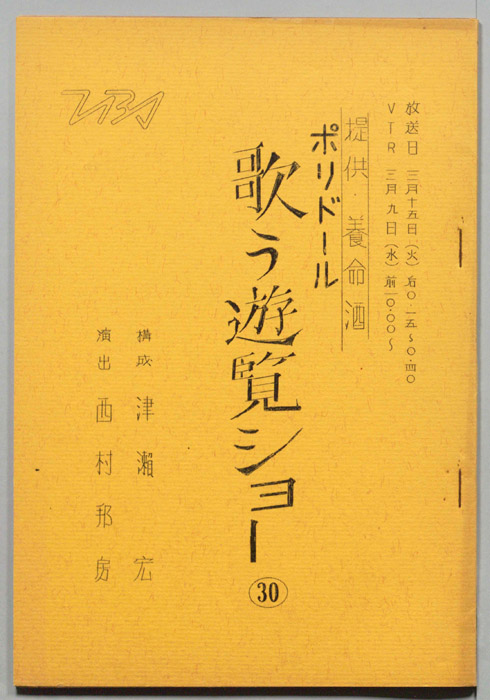 放送日 三月十五日(火)后〇・一五〜〇・四〇
VTR 三月九日(水)前一〇・〇〇〜
提供・養命酒
ポリドール
歌う遊覧ショー
30
構成 津瀬宏
演出 西村邦房